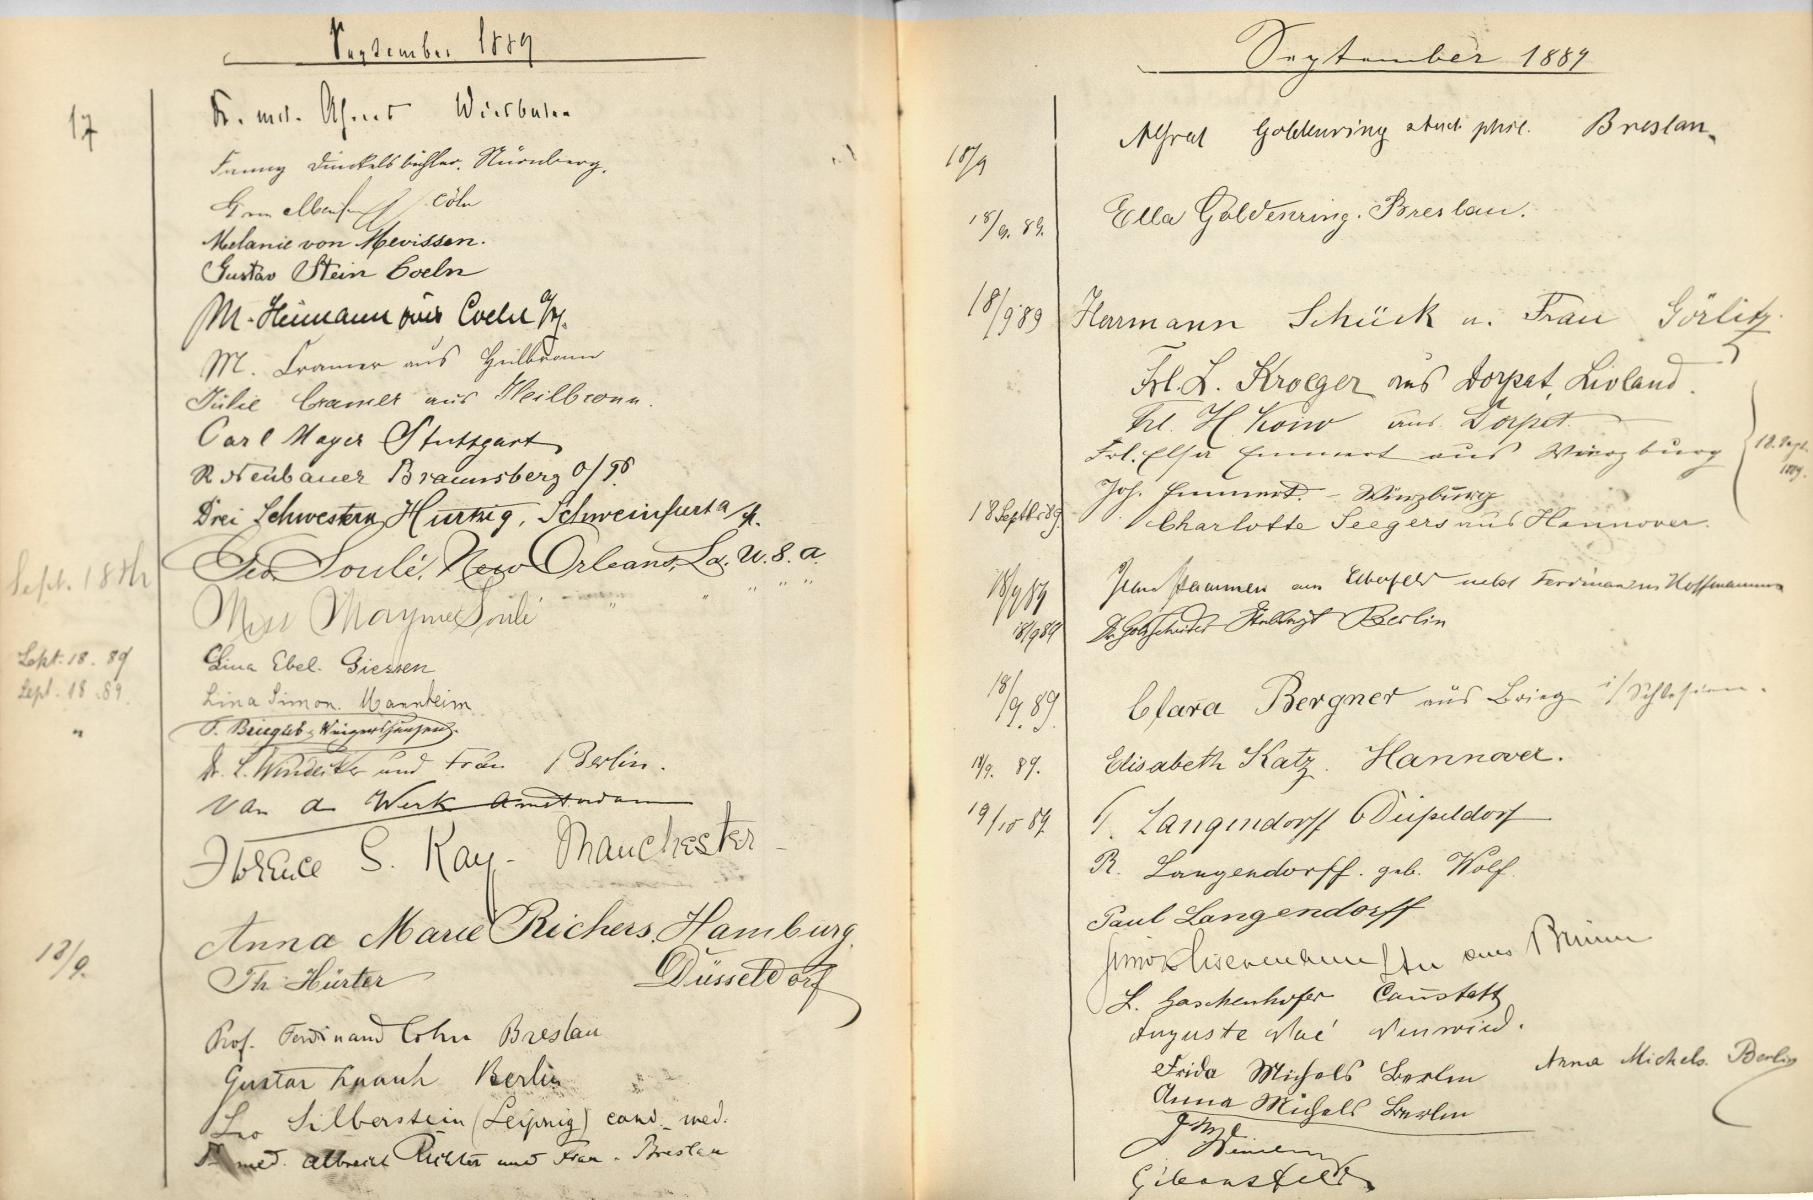 September 1889
17
Dr. med. Wiesbaden
Fanny Dinkelsbühler. Nürnberg.
Cöln
Melanie von Mevissen.
Gustav Stein Coeln
M. Heimann aus Coeln a/Rh.
M. Cramer aus Heilbronn
Julie Cramer aus Heilbronn.
Carl Mayer Stuttgart
R Neubauer Braunsberg O/Pr.
Drei Schwestern Hurtzig, Schweinfurt a/M.
Geo. Soulé, New Orleans, La. U.S.a.
Sept. 18th
Miss Mayme Soulé " " " "
Sept. 18. 89 Lina Ebel. Giessen
Sept. 18. 89. Lina Simon. Mannheim
" T. Briegleb
Dr. L. und Frau Berlin.
Van d Werk Amsterdam
Florence S. Kay - Manchester -
Anna Marie Richers. Hamburg.
18/9. Th. Hürter Düsseldorf
Prof. Ferdinand Cohn Breslau
Gustav Berlin
Leo Silberstein (Leipzig) cand. med.
Dr med. Albrecht Richter und Frau. Breslau
September 1889
18/9 Alfred Goldenring stud. phil. Breslau.
18/9. 89. Ella Goldenring. Breslau.
18/9 89 Herrmann Schück u. Frau Görlitz.
Frl. L. Kroeger aus Dorpat, Livland.
Frl. H. aus Dorpat.
Frl. Elsa Emmert aus Würzburg
18. Sept. 1889.
Joh. Emmert. - Würzburg
18 Septbr 89 Charlotte Seegers aus Hannover.
18/9 89 aus Elberfeld nebst Ferdinandine Hoffmann
18/9 89 Dr. Goldscheider Stabsarzt Berlin
18/9. 89. Clara Bergner aus Brieg i/Schlesien.
18/9. 89. Elisabeth Katz. Hannover.
19/10 89. T. Langendorff Düsseldorf
R. Langendorff. geb. Wolf.
Paul Langendorff
Simon aus Brünn
L. Gaschenhofer Canstatt
Auguste Neuwied.
Frida Michels Berlin
Anna Michels. Berlin
Anna Michels Berlin